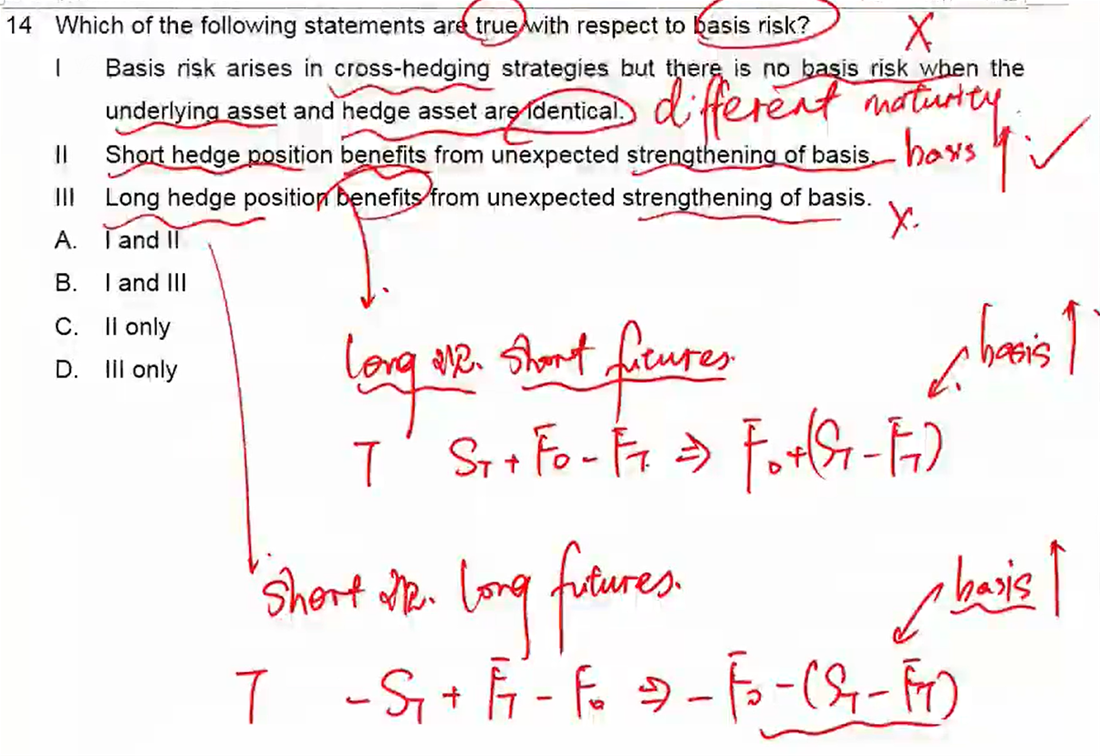 14 Which of the following statements are true with respect to basis risk? X
I Basis risk arises in cross-hedging strategies but there is no basis risk when the
underlying asset and hedge asset are identical. different maturity.
II Short hedge position benefits from unexpected strengthening of basis. basis ↑ : ✓
III Long hedge position benefits from unexpected strengthening of basis. X.
A. I and II
B. I and III
C. II only
D. III only
basis ↑
long short futures.
T S_T + F_0 - F_T. ⇒ F_0 + (S_T - F_T)
basis ↑
short long futures.
T - S_T + F_T - F_0 ⇒ - F_0 - (S_T - F_T)